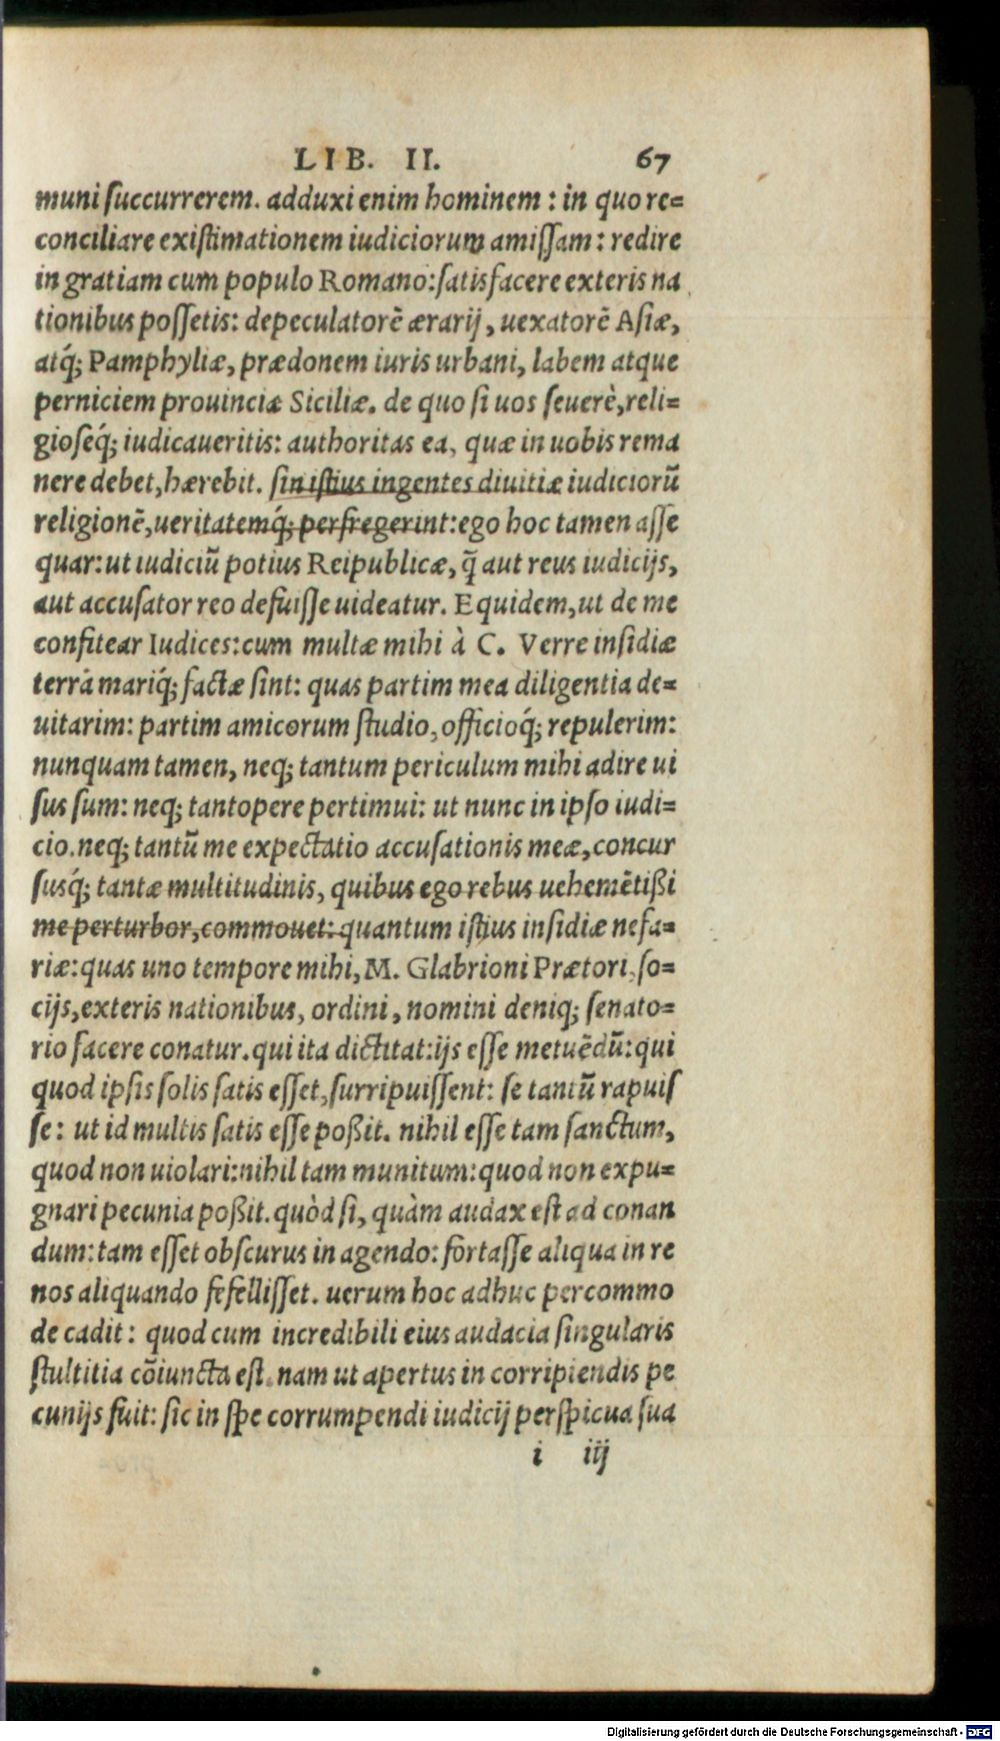 LIB. II. 67
muni ſuccurrerem. adduxi enim hominem : in quo re=
conciliare exiſtimationem iudiciorum amiſſam : redire
in gratiam cum populo Romano: ſatisfacere exteris na
tionibus poſſetis: depeculatorē ærarij, uexatorē Aſiæ,
atq́; Pamphyliæ, prædonem iuris urbani, labem atque
perniciem prouinciæ Siciliæ. de quo ſi uos ſeuerè, reli=
gioſeq́; iudicaueritis: authoritas ea, quæ in uobis rema
nere debet, hærebit. ſin iſtius ingentes diuitiæ iudiciorū
religionē, ueritatemq́; perfregerint: ego hoc tamen aſſe
quar: ut iudiciū potius Reipublicæ, q̃ aut reus iudicijs,
aut accuſator reo defuiſſe uideatur. Equidem, ut de me
confitear Iudices: cum multæ mihi à C. Verre inſidiæ
terrâ mariq́; factæ ſint: quas partim mea diligentia de=
uitarim: partim amicorum ſtudio, officioq́; repulerim:
nunquam tamen, neq; tantum periculum mihi adire ui
ſus ſum: neq; tantopere pertimui: ut nunc in ipſo iudi=
cio. neq; tantū me expectatio accuſationis meæ, concur
ſusq́; tantæ multitudinis, quibus ego rebus uehemētißi
me perturbor, commouet: quantum iſtius inſidiæ nefa=
riæ: quas uno tempore mihi, M. Glabrioni Prætori, ſo=
cijs, exteris nationibus, ordini, nomini deniq; ſenato=
rio facere conatur. qui ita dictitat: ijs eſſe metuēdū: qui
quod ipſis ſolis ſatis eſſet, ſurripuiſſent: ſe tantū rapuiſ
ſe: ut id multis ſatis eſſe poßit. nihil eſſe tam ſanctum,
quod non uiolari: nihil tam munitum: quod non expu=
gnari pecunia poßit. quòd ſi, quàm audax eſt ad conan
dum: tam eſſet obſcurus in agendo: fortaſſe aliqua in re
nos aliquando fefelliſſet. uerum hoc adhuc percommo
de cadit: quod cum incredibili eius audacia ſingularis
ſtultitia cōiuncta eſt. nam ut apertus in corripiendis pe
cunijs fuit: ſic in ſpe corrumpendi iudicij perſpicua ſua
i iij
Digitalisierung gefördert durch die Deutsche Forschungsgemeinschaft - DFG